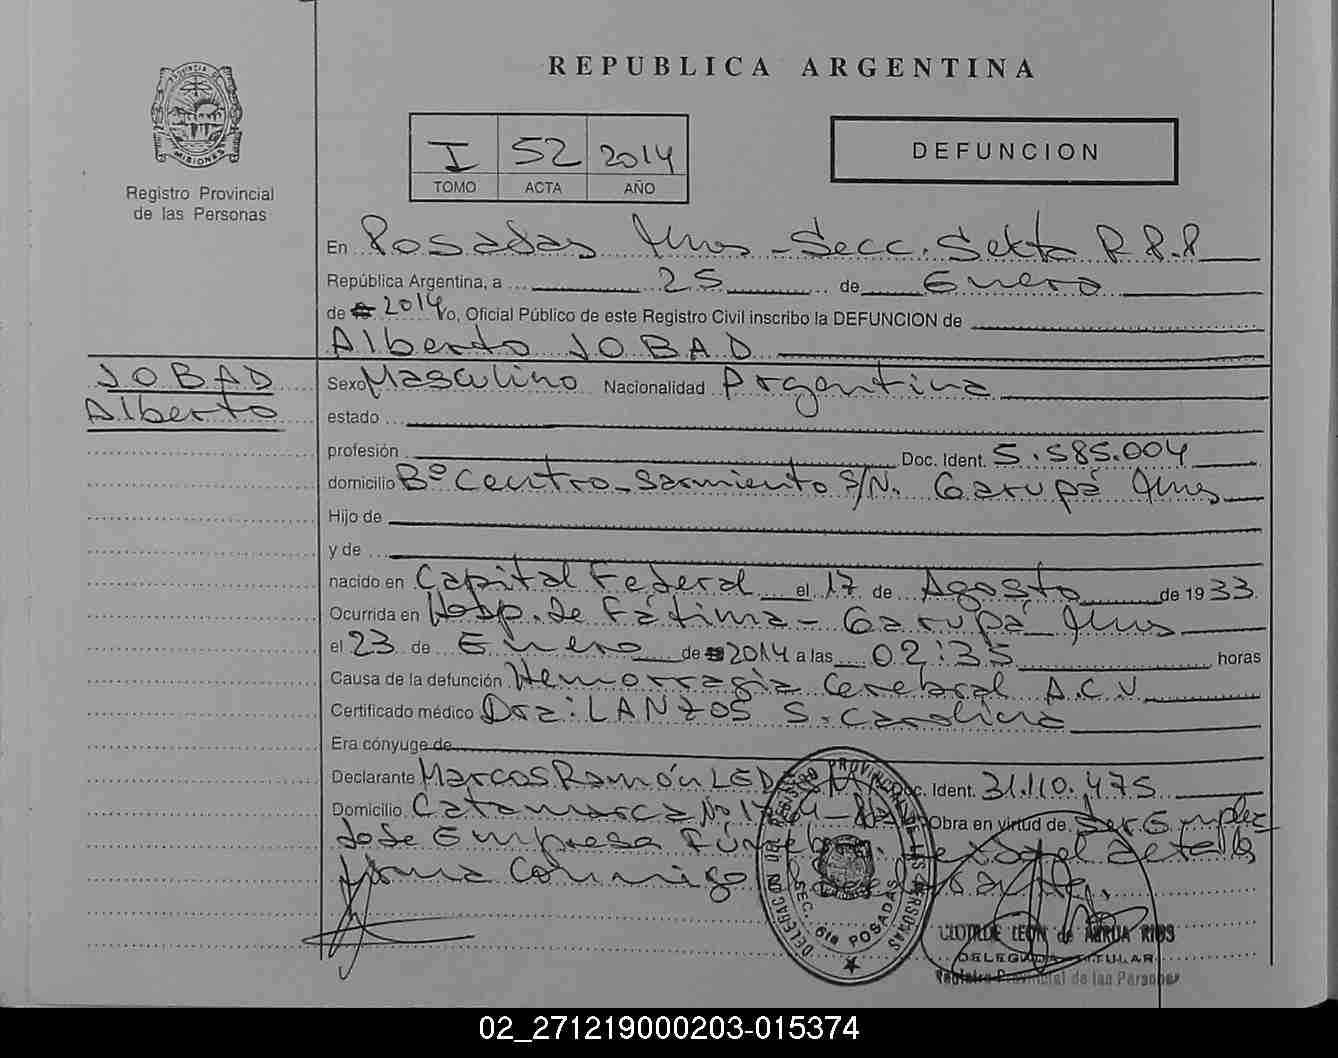 REPUBLICA ARGENTINA
PROVINCIA DE MISIONES
Registro Provincial
de las Personas
I 52 2014
TOMO ACTA AÑO
DEFUNCION
En Posadas Mnes - Secc. Sexta R.P.P
República Argentina, a 25 de Enero
de 2014 Yo, Oficial Público de este Registro Civil inscribo la DEFUNCION de
Alberto JOBAD
JOBAD
Alberto
Sexo Masculino Nacionalidad Argentina
estado
profesión Doc. Ident. 5.585.004
domicilio Bº Centro - Sarmiento S/N. Garupá Mnes
Hijo de
y de
nacido en Capital Federal el 17 de Agosto de 1933
Ocurrida en Hosp. de Fátima - Garupá Mnes
el 23 de Enero de 2014 a las 02:35 horas
Causa de la defunción Hemorragia Cerebral A.C.V
Certificado médico Dra: LANZOS S. Carolina
Era cónyuge de
Declarante Marcos Ramón Doc. Ident. 31.110.475
Domicilio Catamarca Nº Obra en virtud de Ser Emplea
do de Empresa Fúnebre.
firma Conmigo
REGISTRO PROVINCIAL DE LAS PERSONAS
DELEGACION
SEC. 6ta POSADAS
CLOTILDE LEON de ARRUA RIOS
DELEGADA TITULAR
Registro Provincial de las Personas
02_271219000203-015374